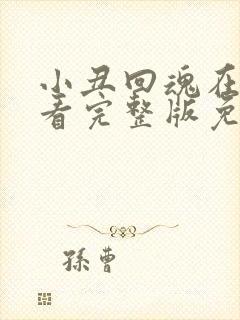 小丑回魂在
看完整版免
孫曹